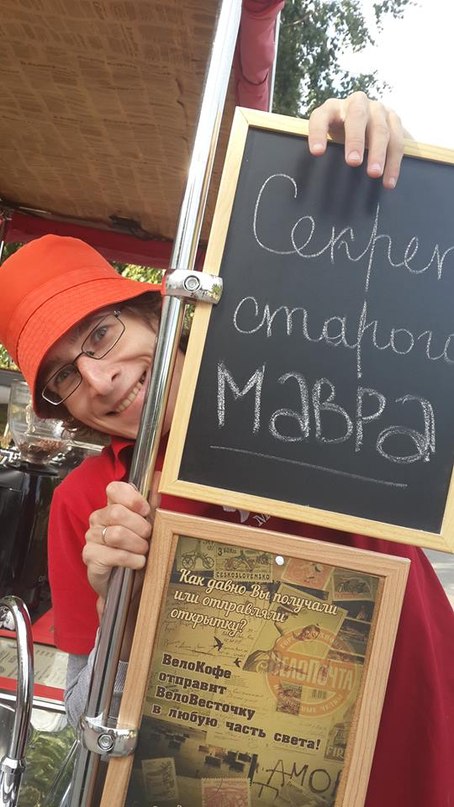 Секрет
старого
Мавра
ČESKOSLOVENSKO
Как давно Вы получали
или отправляли
открытку?
ВЕЛОПОЧТА
ВелоКофе
отправит
ВелоВесточку
в любую часть света!